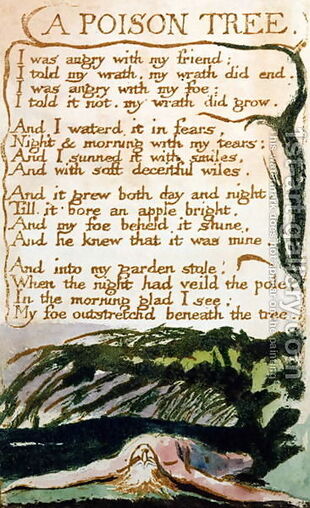 A POISON TREE.
I was angry with my friend;
I told my wrath, my wrath did end.
I was angry with my foe:
I told it not, my wrath did grow.
And I waterd it in fears,
Night & morning with my tears:
And I sunned it with smiles,
And with soft deceitful wiles.
And it grew both day and night,
Till it bore an apple bright.
And my foe beheld it shine,
And he knew that it was mine
And into my garden stole,
When the night had veild the pole;
In the morning glad I see;
My foe outstretchd beneath the tree